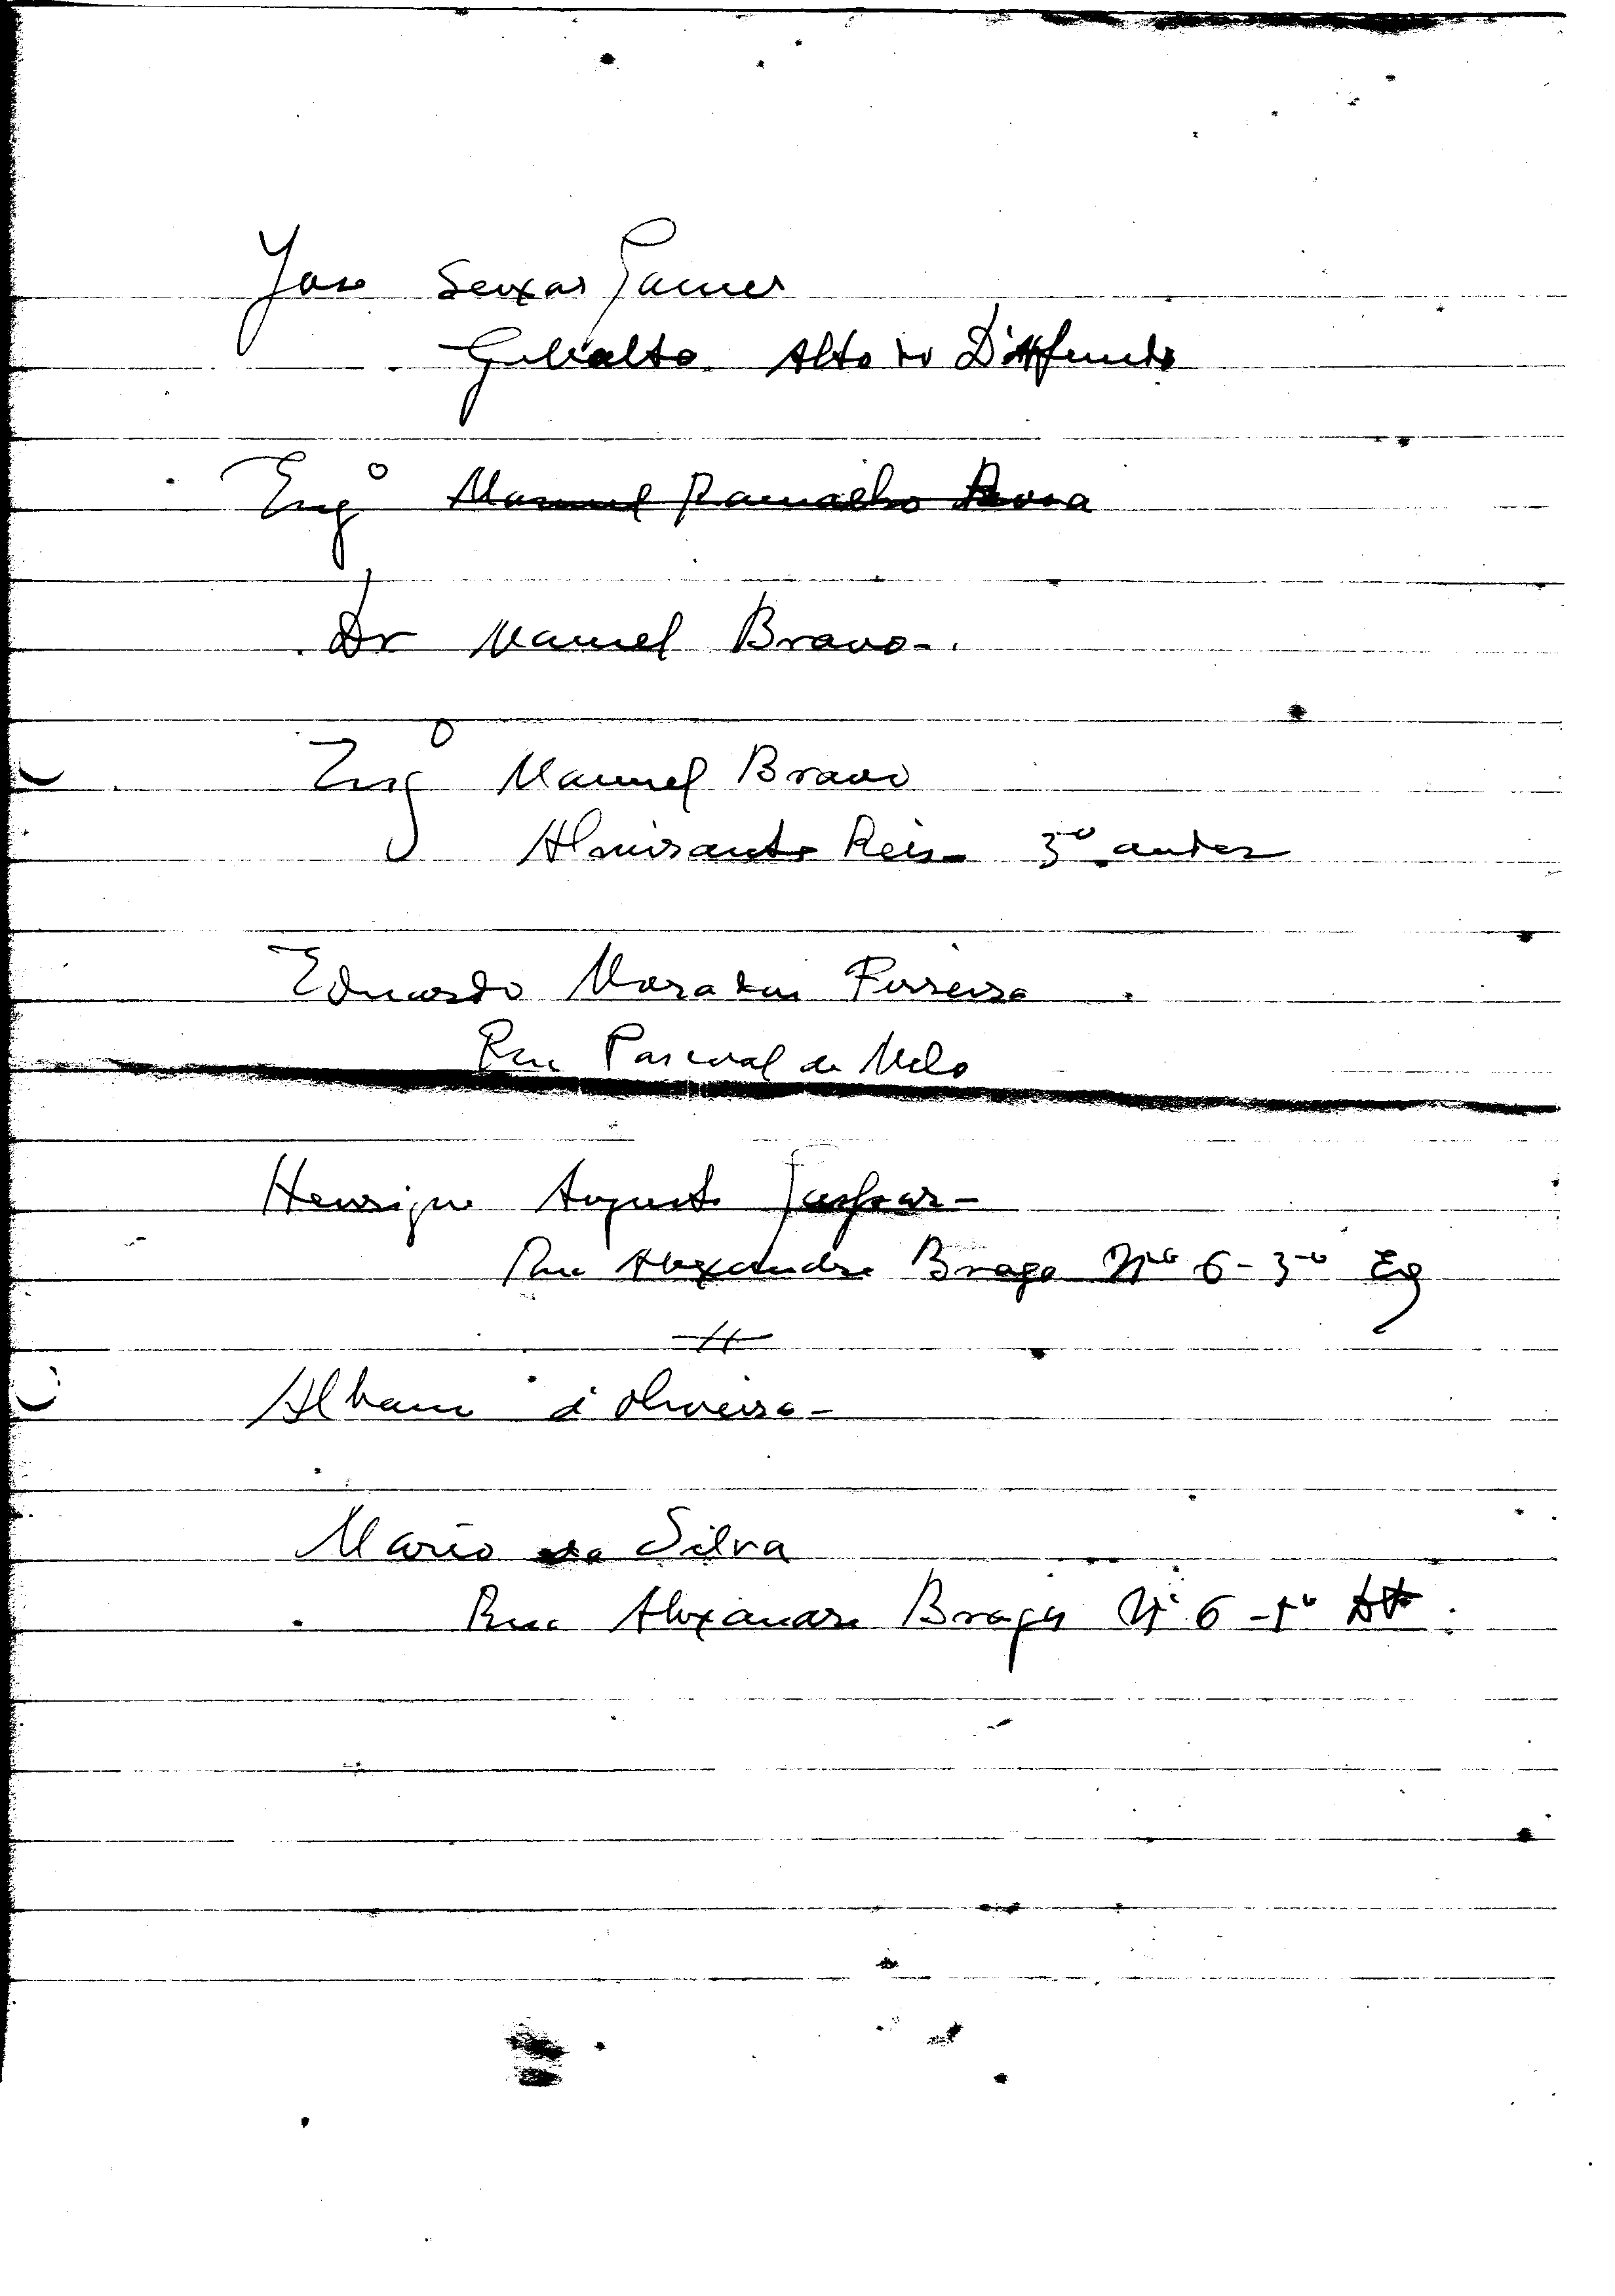 José Seixas Gomes
Gibralta Alto do Dáfundo
Engº Manuel Ramalho Rosa
Dr Manuel Bravo -.
Engº Manuel Bravo
Almirante Reis - 3º andar
Eduardo Ferreira
Rua Pascoal de Melo
Henrique Augusto Gaspar -
Rua Alexandre Braga Nº 6 - 3º Eq
Albano d'Oliveira -
Mario da Silva
Rua Alexandre Braga Nº 6 - 1º Dt